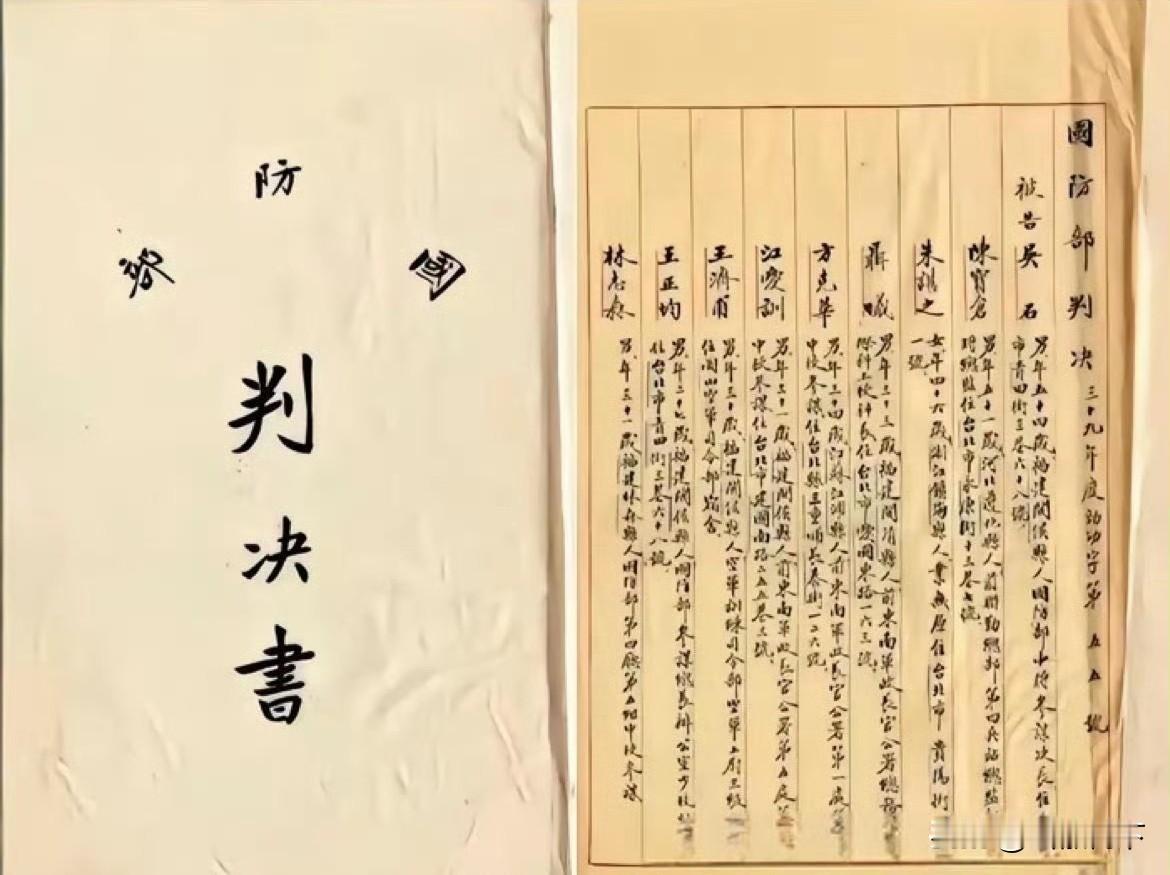 國
防
部
判決書
國防部判決 三十九年度勁助字第五五號
被告 吳石 男、年五十四歲福建閩侯縣人國防部中將參謀次長住
市青田街三巷六十八號
陳寶倉 男年五十一歲河北遵化縣人前聯勤總部第四兵站總監
住台北市永康街十三巷七號
朱諶之 女年四十六歲浙江鎮海縣人業無原住台北市貴陽街
一號
聶曦 男年三十三歲福建閩清縣人前東南軍政長官公署總務
科上校科長住台北市愛國東路一六三號
方克華 男年三十四歲江蘇江浦縣人前東南軍政長官公署第一處
中校參謀住台北縣三重埔長泰街一二六號
江愛訓 男年三十一歲福建閩侯縣人前東南軍政長官公署第五處
中校參謀住台北市建國南路二五五巷三號
王濟甫 男年三十歲福建閩侯縣人空軍訓練司令部空軍上尉三級
住岡山空軍司令部宿舍
王正均 男年二十七歲福建閩侯縣人國防部參謀總長辦公室少校
住台北市青田街三巷六十八號
林志森 男年三十一歲福建林森縣人國防部第四廳第五組中校參謀